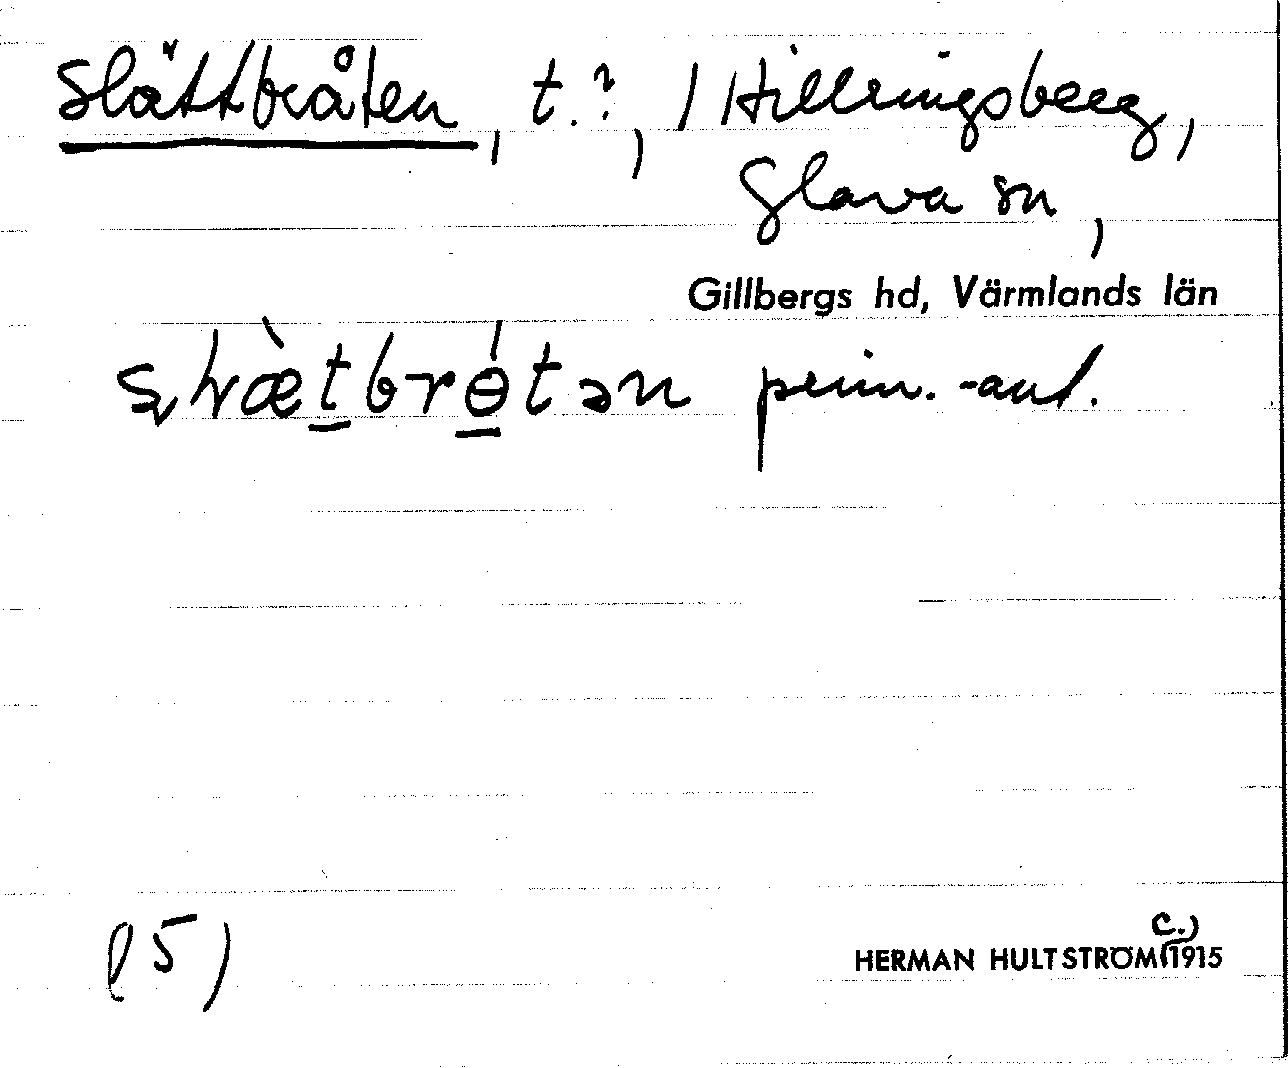 Slättbråten, t.?, / Hillringsberg,
Glava sn,
Gillbergs hd, Värmlands län
prim.-ant.
(5)
HERMAN HULTSTRÖM (c.) 1915